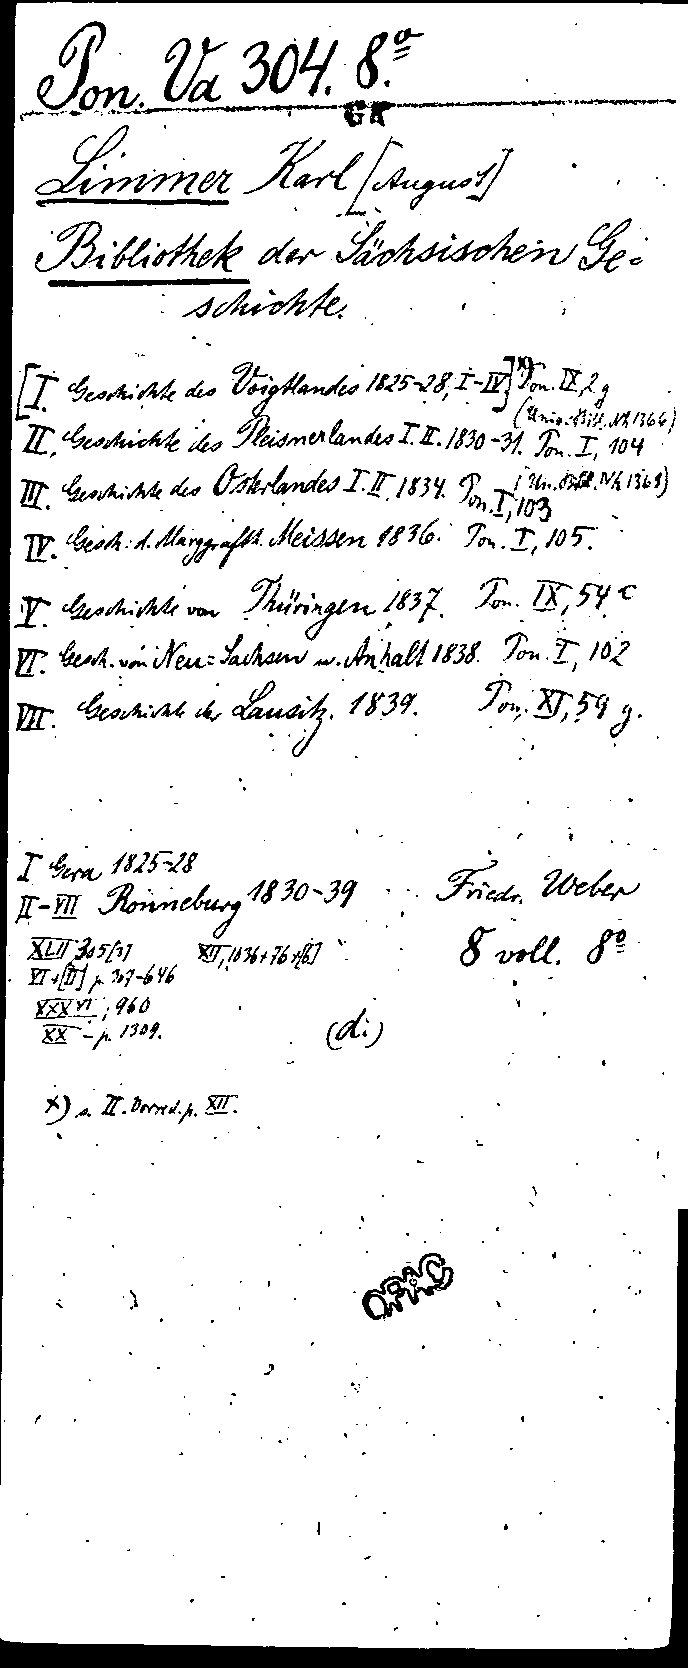 Pon. Va 304. 8.º
GK
Limmer Karl [August]
Bibliothek der Sächsischen Ge=
schichte.
[I. Geschichte des Voigtlandes 1825-28, I-IV] x) Pon. IX, 2 g
(Univ. Bibl. Nh 1366)
II. Geschichte des Pleisnerlandes I. II. 1830-31. Pon. I, 104
(Un. Bibl. Nh 1368)
III. Geschichte des Osterlandes I. II. 1834. Pon. I, 103
IV. Gesch. d. Marggrafth. Meissen 1836. Pon. I, 105.
V. Geschichte von Thüringen 1837. Pon. IX, 54 c
VI. Gesch. von Neu=Sachsen u. Anhalt 1838. Pon. I, 102
VII. Geschichte der Lausitz. 1839. Pon. XI, 59 g.
I Gera 1825-28
II-VII Ronneburg 1830-39 Friedr. Weber
XLII 305[3] XII, 1036+76+[6] 8 voll. 8º
VI+[II] p. 307-646
XXXVI, 960
XX - p. 1309. (d.)
x) s. II. Vorred. p. XII.
OPAC